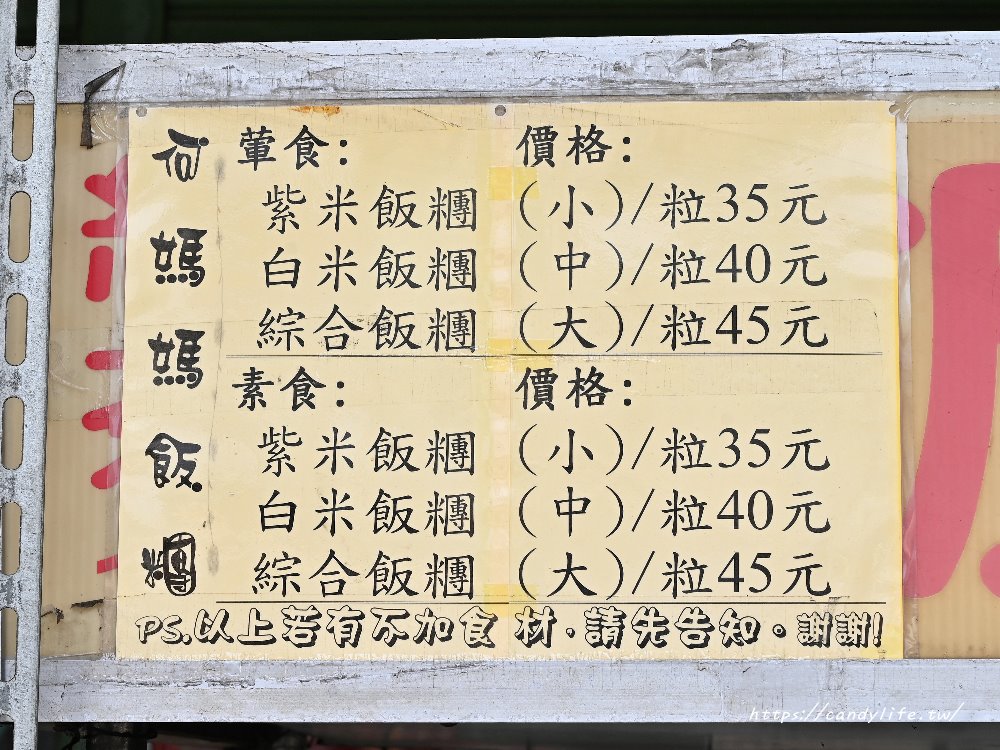 何媽媽飯糰
葷食: 價格:
紫米飯糰 (小)/粒35元
白米飯糰 (中)/粒40元
綜合飯糰 (大)/粒45元
素食: 價格:
紫米飯糰 (小)/粒35元
白米飯糰 (中)/粒40元
綜合飯糰 (大)/粒45元
PS.以上若有不加食材.請先告知。謝謝!
https://candylife.tw/